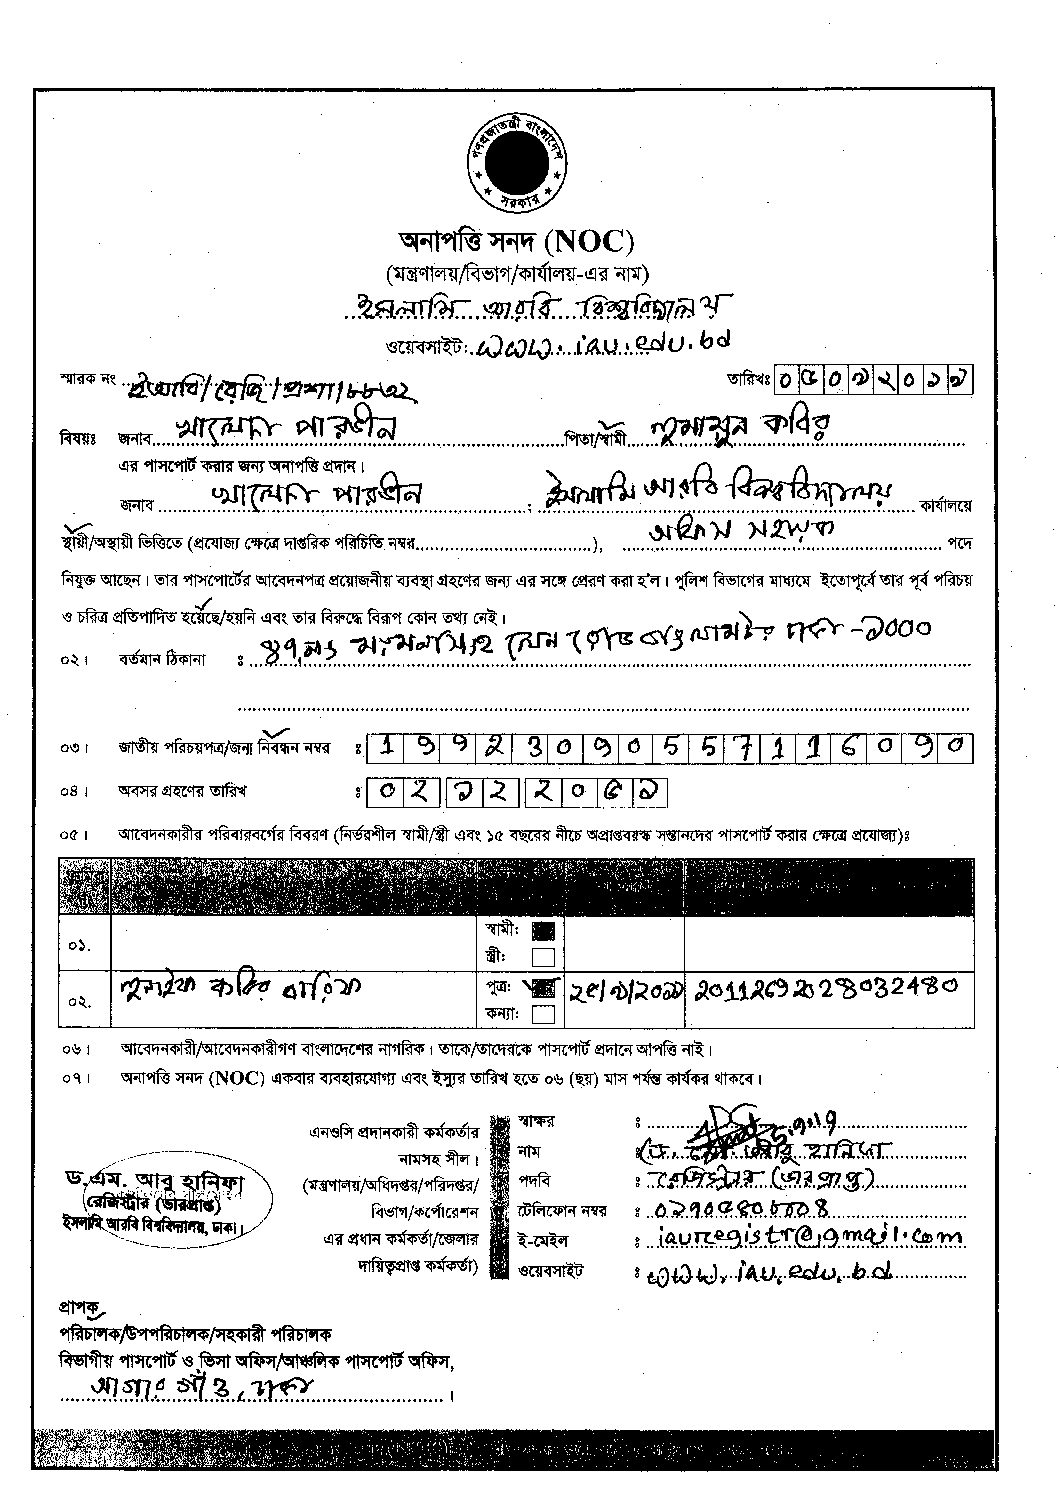 গণপ্রজাতন্ত্রী বাংলাদেশ
সরকার
অনাপত্তি সনদ (NOC)
(মন্ত্রণালয়/বিভাগ/কার্যালয়-এর নাম)
ইসলামি আরবি বিশ্ববিদ্যালয়
ওয়েবসাইট: www.iau.edu.bd
স্মারক নং ইআবি/রেজি/প্রশা/ তারিখঃ ০৫০৯২০১৯
বিষয়ঃ জনাব পারভীন পিতা/স্বামী হুমায়ুন কবির
এর পাসপোর্ট করার জন্য অনাপত্তি প্রদান।
জনাব পারভীন : ইসলামি আরবি বিশ্ববিদ্যালয় কার্যালয়ে
স্থায়ী/অস্থায়ী ভিত্তিতে (প্রযোজ্য ক্ষেত্রে দাপ্তরিক পরিচিতি নম্বর), অফিস সহায়ক পদে
নিযুক্ত আছেন। তার পাসপোর্টের আবেদনপত্র প্রয়োজনীয় ব্যবস্থা গ্রহণের জন্য এর সঙ্গে প্রেরণ করা হ'ল। পুলিশ বিভাগের মাধ্যমে ইতোপূর্বে তার পূর্ব পরিচয়
ও চরিত্র প্রতিপাদিত হয়েছে/হয়নি এবং তার বিরুদ্ধে বিরূপ কোন তথ্য নেই।
০২। বর্তমান ঠিকানা : ঢাকা -১০০০
০৩। জাতীয় পরিচয়পত্র/জন্ম নিবন্ধন নম্বর ঃ 19923090557116090
০৪। অবসর গ্রহণের তারিখ ঃ ০২১২২০৫১
০৫। আবেদনকারীর পরিবারবর্গের বিবরণ (নির্ভরশীল স্বামী/স্ত্রী এবং ১৫ বছরের নীচে অপ্রাপ্তবয়স্ক সন্তানদের পাসপোর্ট করার ক্ষেত্রে প্রযোজ্য)ঃ
০১. স্বামী:
স্ত্রী:
০২. কবির পুত্র: 20112692028032480
কন্যা:
০৬। আবেদনকারী/আবেদনকারীগণ বাংলাদেশের নাগরিক। তাকে/তাদেরকে পাসপোর্ট প্রদানে আপত্তি নাই।
০৭। অনাপত্তি সনদ (NOC) একবার ব্যবহারযোগ্য এবং ইস্যুর তারিখ হতে ০৬ (ছয়) মাস পর্যন্ত কার্যকর থাকবে।
এনওসি প্রদানকারী কর্মকর্তার স্বাক্ষর :
নামসহ সীল। নাম : আবু হানিফা
(মন্ত্রণালয়/অধিদপ্তর/পরিদপ্তর/ পদবি ঃ রেজিস্ট্রার (ভারপ্রাপ্ত)
বিভাগ/কর্পোরেশন টেলিফোন নম্বর ঃ
এর প্রধান কর্মকর্তা/জেলার ই-মেইল ঃ iauregistr@gmail.com
দায়িত্বপ্রাপ্ত কর্মকর্তা) ওয়েবসাইট ঃ www.iau.edu.bd
ড.এম. আবু হানিফা
রেজিস্ট্রার (ভারপ্রাপ্ত)
ইসলামি আরবি বিশ্ববিদ্যালয়, ঢাকা।
প্রাপক
পরিচালক/উপপরিচালক/সহকারী পরিচালক
বিভাগীয় পাসপোর্ট ও ভিসা অফিস/আঞ্চলিক পাসপোর্ট অফিস,
আগারগাঁও, ঢাকা।